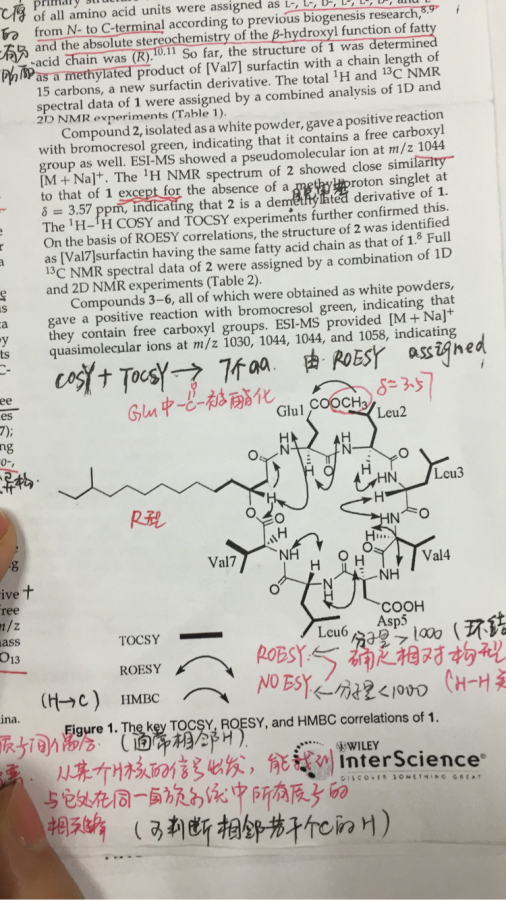 of all amino acid units were assigned as L-, L-, D-, L-, L-, D-, and L-
from N- to C-terminal according to previous biogenesis research,8,9
and the absolute stereochemistry of the β-hydroxyl function of fatty
acid chain was (R).10,11 So far, the structure of 1 was determined
as a methylated product of [Val7] surfactin with a chain length of
15 carbons, a new surfactin derivative. The total 1H and 13C NMR
spectral data of 1 were assigned by a combined analysis of 1D and
2D NMR experiments (Table 1).
Compound 2, isolated as a white powder, gave a positive reaction
with bromocresol green, indicating that it contains a free carboxyl
group as well. ESI-MS showed a pseudomolecular ion at m/z 1044
[M + Na]+. The 1H NMR spectrum of 2 showed close similarity
to that of 1 except for the absence of a methyl proton singlet at
δ = 3.57 ppm, indicating that 2 is a demethylated derivative of 1.
The 1H–1H COSY and TOCSY experiments further confirmed this.
On the basis of ROESY correlations, the structure of 2 was identified
as [Val7]surfactin having the same fatty acid chain as that of 1.8 Full
13C NMR spectral data of 2 were assigned by a combination of 1D
and 2D NMR experiments (Table 2).
Compounds 3–6, all of which were obtained as white powders,
gave a positive reaction with bromocresol green, indicating that
they contain free carboxyl groups. ESI-MS provided [M + Na]+
quasimolecular ions at m/z 1030, 1044, 1044, and 1058, indicating
COSY + TOCSY → 7个aa. 由 ROESY assigned
Glu中 -C- 被酯化
δ=3.57
Glu1 COOCH3 Leu2
Leu3
R型
Val7
Val4
COOH
Asp5
Leu6
分子量>1000
TOCSY
ROESY
HMBC
ROESY
NOESY
确定相对构型
分子量<1000
(H-H
(H→C)
Figure 1. The key TOCSY, ROESY, and HMBC correlations of 1.
(通常相邻H)
WILEY
InterScience®
DISCOVER SOMETHING GREAT
从某个H核的信号出发, 能找到
与它处在同一自旋系统中所有质子的
相关峰 (可判断相邻若干个C的H)